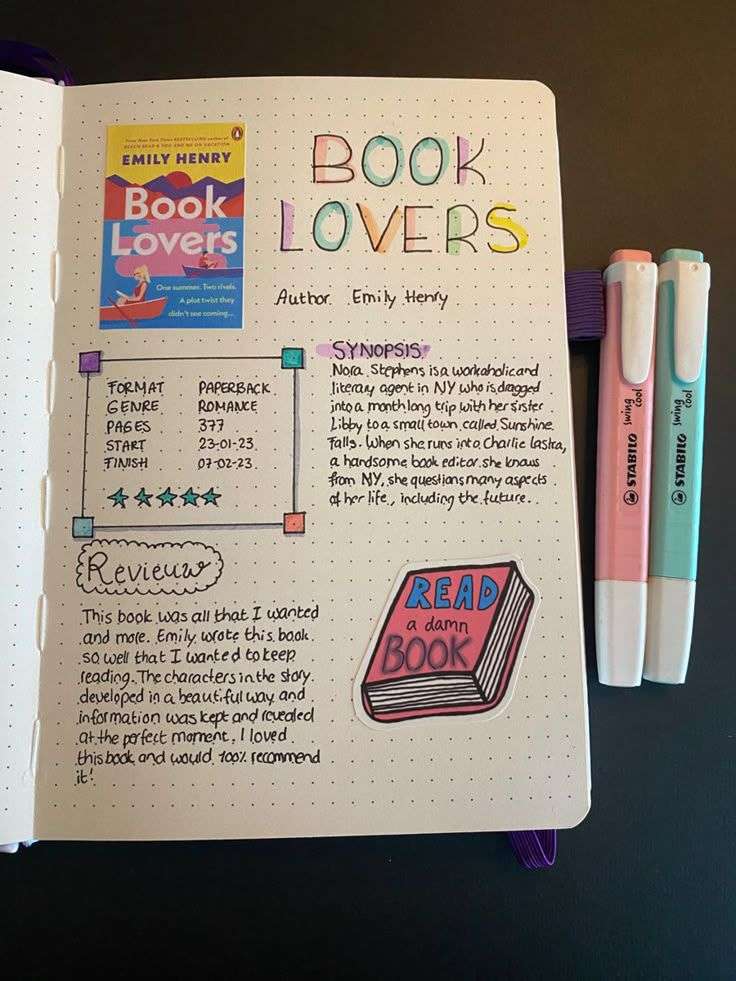 New York Times BESTSELLING author of
BEACH READ & YOU AND ME ON VACATION
EMILY HENRY
Book
Lovers
One summer. Two rivals.
A plot twist they
didn't see coming...
BOOK
LOVERS
Author Emily Henry
FORMAT PAPERBACK
GENRE ROMANCE
PAGES 377
START 23-01-23
FINISH 07-02-23
SYNOPSIS
Nora Stephens is a workaholic and
literary agent in NY who is dragged
into a month long trip with her sister
Libby to a small town called Sunshine
Falls. When she runs into Charlie Lastra,
a handsome book editor she knows
from NY, she questions many aspects
of her life, including the future.
Revieuw
This book was all that I wanted
and more. Emily wrote this book
so well that I wanted to keep
reading. The characters in the story
developed in a beautiful way and
information was kept and revealed
at the perfect moment. I loved
this book and would 100% recommend
it!
READ
a damn
BOOK
STABILO swing cool
STABILO swing cool